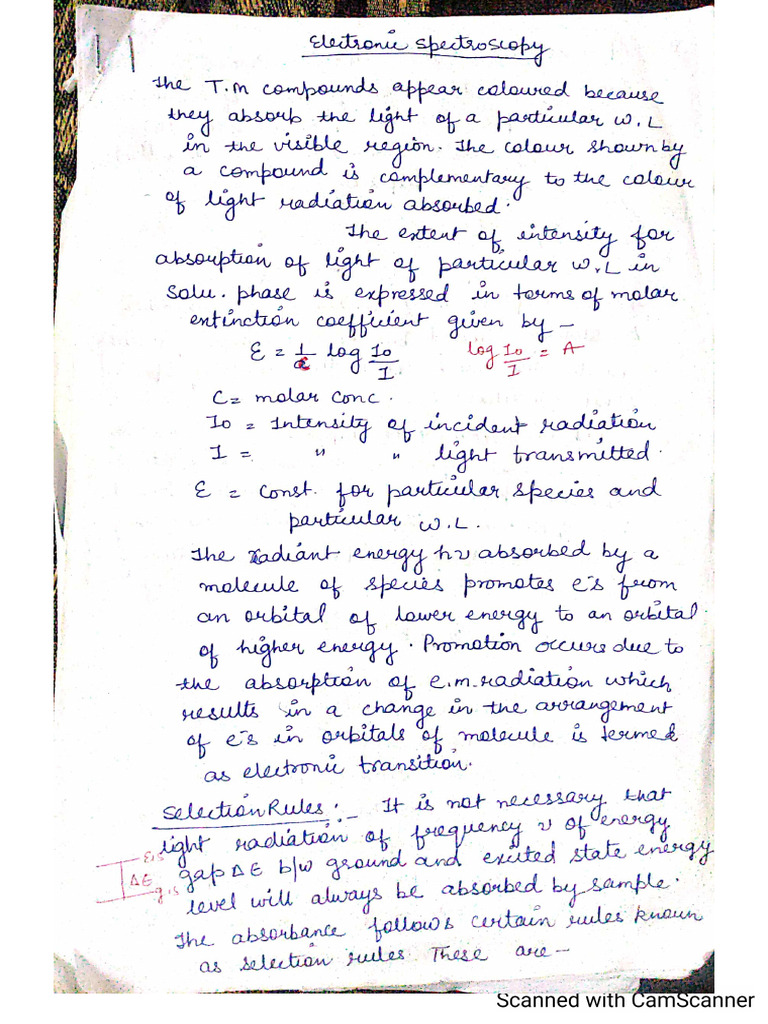 Electronic Spectroscopy
The T.M compounds appear coloured because
they absorb the light of a particular W.L
in the visible region. The colour shown by
a compound is complementary to the colour
of light radiation absorbed.
The extent of intensity for
absorption of light of particular W.L in
Solu. phase is expressed in terms of molar
extinction coefficient given by –
ε = 1/c log I0/I    log I0/I = A
C = molar conc.
I0 = Intensity of incident radiation
I = " " light transmitted.
ε = const. for particular species and
particular W.L.
The radiant energy hν absorbed by a
molecule of species promotes e's from
an orbital of lower energy to an orbital
of higher energy. Promotion occurs due to
the absorption of e.m. radiation which
results in a change in the arrangement
of e-s in orbitals of molecule is termed
as electronic transition.
Selection Rules :– It is not necessary that
light radiation of frequency ν of energy
E.S
gap ΔE b/w ground and excited state energy
ΔE
g.s
level will always be absorbed by sample.
The absorbance follows certain rules known
as selection rules. These are –
Scanned with CamScanner